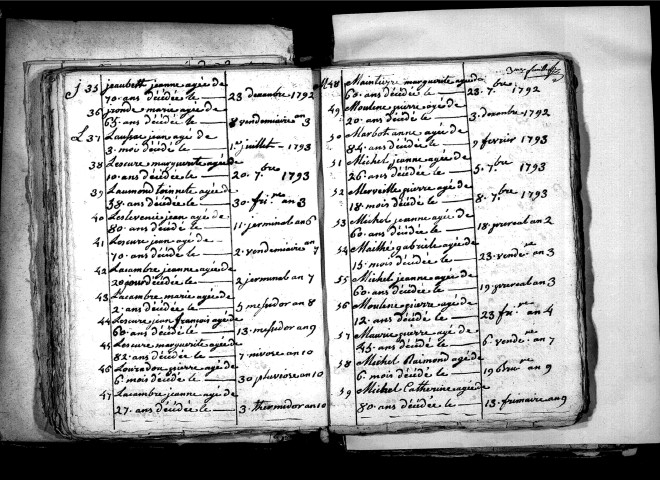 J 35 jeaubett jeanne agée de
70. ans décédée le 23 decembre 1792
36 jronde marie agée de
65. ans décédée le 8 vendemiaire an 3
L 37 Laussac jean agé de
3. mois décédé le 1er juillet - 1793
38 Lescure marguerite agée de
10. ans décédée le 20. 7.bre 1793
39 Laumond toinette agée de
58. ans décédée le 30. fri.re an 3
40 Leslevenie jean agé de
80. ans décédé le 11. jerminal an 6
41 Lescure jean agé de
70. ans décédé le 2. vendemiaire an 7
42 Lacambre jeanne agée de
20 jours décédée le 2 jerminal an 7
43 Lacambre marie agée de
2. ans décédée le 5 messidor an 8
44 Lescure jean françois agé de
60. ans décédé le 13. messidor an 9
45 Lescure marguerite agée de
82. ans décédée le 7. nivose an 10
46 Louradou pierre agé de
6. mois décédé le 30 pluviose an 10
47 Lacambre jeanne agée de
27. ans décédée le 3. thermidor an 10
M. 48 marguerite agée de
60. ans décédée le 23. 7.bre 1792
49 Moulene pierre agé de
20. ans décédé le 3. decembre 1792
50 Marbot anne agée de
84. ans décédée le 9 fevrier 1793
51 Michel jeanne agée de
26. ans décédée le 5. 7.bre 1793
52 Merveille pierre agé de
18. mois décédé le 8. 7.bre 1793
53 Michel jeanne agée de
60. ans décédée le 18. prereal an 2
54 Maithé gabriele agée de
15. mois décédée le 23. vende.re an 3
55 Michel jeanne agée de
60. ans décédée le 19. prereal an 3
56 Moulene pierre agé de
12. ans décédé le 23 fri.re an 4
57 Maurie pierre agé de
45. ans décédé le 6. vende.re an 7
58 Michel Raimond agé de
6. mois décédé le 19 bru.re an 9
59 Michel Catherine agée de
80. ans décédée le 13. frimaire an 9